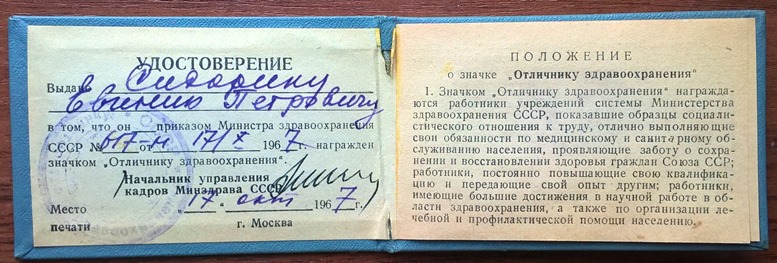 УДОСТОВЕРЕНИЕ
Выдано Сидорину
Евгению Петровичу
в том, что он приказом Министра здравоохранения
СССР № 617-н от 17/X 1967 г. награжден
значком „Отличнику здравоохранения“.
Начальник управления
кадров Минздрава СССР
Место 17 окт 1967 г.
печати г. Москва
ПОЛОЖЕНИЕ
о значке „Отличнику здравоохранения“
1. Значком „Отличнику здравоохранения“ награжда-
ются работники учреждений системы Министерства
здравоохранения СССР, показавшие образцы социали-
стического отношения к труду, отлично выполняющие
свои обязанности по медицинскому и санитарному об-
служиванию населения, проявляющие заботу о сохране-
нии и восстановлении здоровья граждан Союза ССР;
работники, постоянно повышающие свою квалифика-
цию и передающие свой опыт другим; работники,
имеющие большие достижения в научной работе в об-
ласти здравоохранения, а также по организации ле-
чебной и профилактической помощи населению.